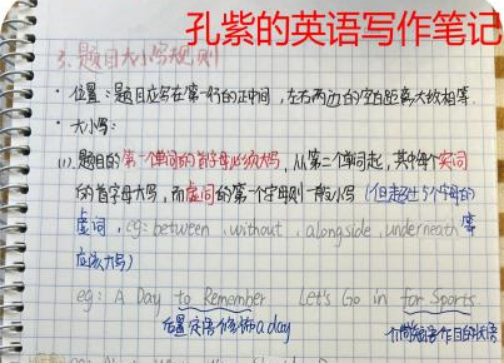 孔紫的英语写作笔记
3. 题目大小写规则
· 位置：题目应写在第一行的正中间，左右两边的空白距离大致相等.
· 大小写：
(1). 题目的第一个单词的首字母必须大写，从第二个单词起，其中每个实词
的首字母大写，而虚词的第一个字母则一般小写（但超过5个字母的
虚词，eg: between , without , alongside , underneath 等
应该大写）
eg: A Day to Remember Let's Go in for Sports.
后置定语修饰a day 作目的状语